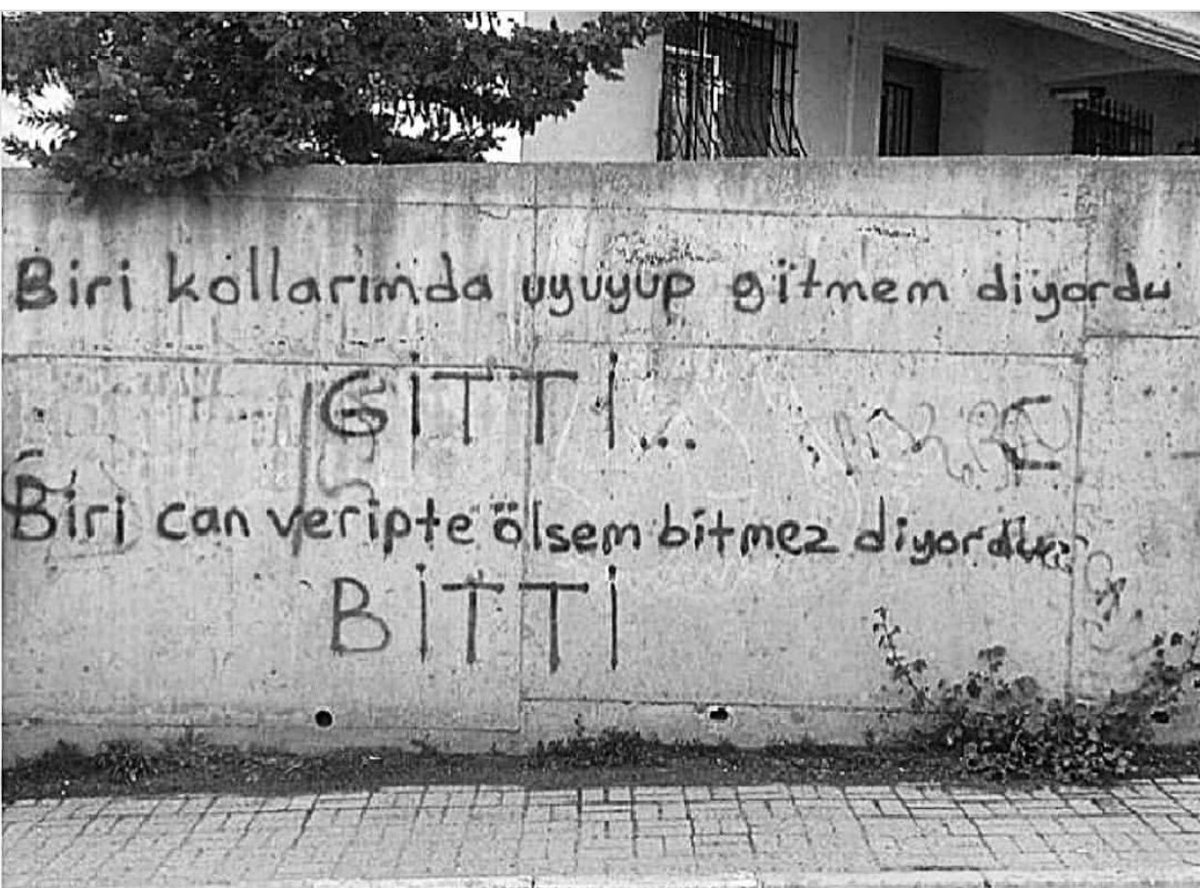 Biri kollarımda uyuyup gitmem diyordu
GİTTİ...
Biri can veripte ölsem bitmez diyordu
BİTTİ